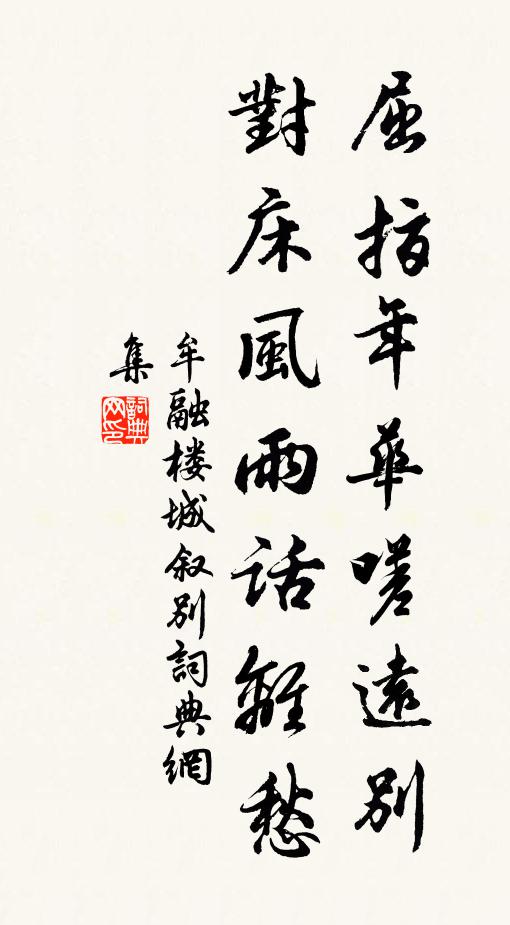 屈指年華嗟遠別
對床風雨話離愁
牟融楼城叙別詞典網
集
詞典网印